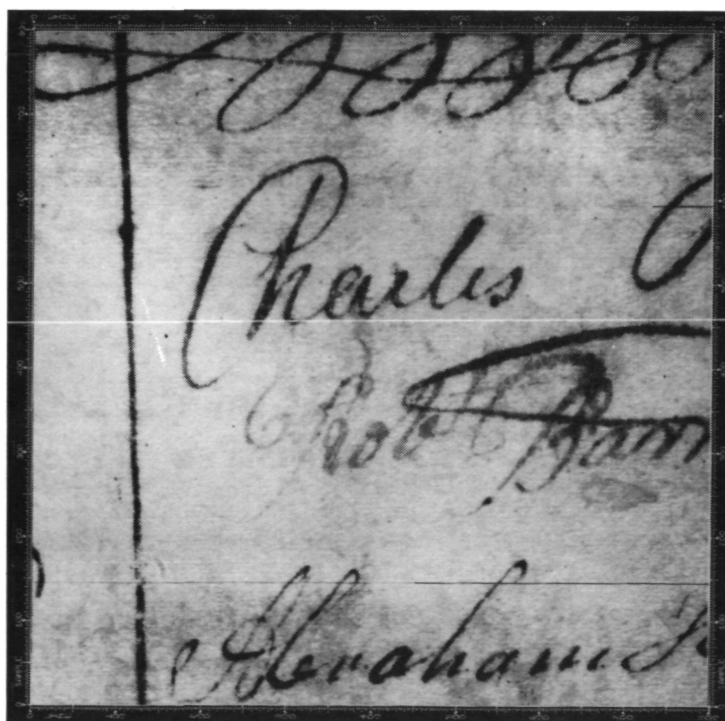 Charles
Robt Barr
Abraham